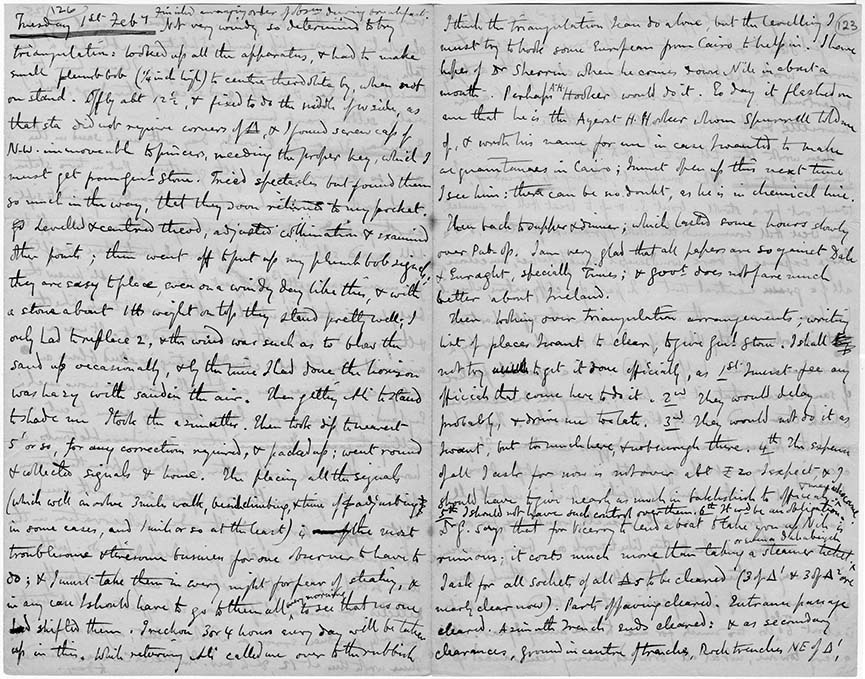 126
Finished arranging order of boxes during breakfast.
Tuesday 1st Feby Not very windy so determined to try
triangulation: looked up all the apparatus, & had to make
small plumb bob (½ inch high) to centre theodolite by, when not
on stand. Off by abt 12½, & fixed to do the middle of W side, as
that sta did not require corners of Δ, & I found screw cap of
N.W. immovable to pincers, needing the proper key, which I
must get from Genl Stone. Tried spectacles but found them
so much in the way, that they soon returned to my pocket.
Levelled & centred theod, adjusted collimation & examined
other points; then went off to put up my plumb bob signals,
they are easy to place, even on a windy day like this, & with
a stone about 1 lb weight on top they stand pretty well; I
only had to replace 2, & the wind was such as to blow the
sand up occasionally, & by the time I had done the horizon
was hazy with sand in the air. Then getting Ali to stand
to shade me I took the azimuths. Then took dip to nearest
5' or so, for any correction required, & packed up; went round
& collected signals & home. The placing all the signals
(which will involve 3 miles walk, besides climbing, & time of adjusting
in some cases, and 1 mile or so at the least) is the most
troublesome & tiresome business for one observer to have to
do; & I must take them in every night for fear of stealing, &
in any case I should have to go to them all every morning to see that no one
had shifted them. I reckon 3 or 4 hours every day will be taken
up in this. While returning Ali called me over to the rubbish
123
I think the triangulation I can do alone but the levelling I
must try to hook some European from Cairo to help in. I have
hopes of Dr Sherrin when he comes down Nile in about a
month. Perhaps Hooker would do it. To day it flashed on
me that he is the Ayerst H. Hooker whom Spurrell told me
of, & wrote his name for me in case I wanted to make
acquaintances in Cairo; I must open up this next time
I see him: there can be no doubt, as he is in chemical line.
Then back to supper & dinner; which lasted some hours slowly
over Pub. Op. I am very glad that all papers are so against Dale
& Enraght, specially Times; & govt does not fare much
better about Ireland.
Then looking over triangulation arrangements; writing
list of places I want to clear, to give Genl Stone. I shall
not try to get it done officially, as 1st I must fee any
officials that come here to do it. 2nd They would delay
probably, & drive me too late. 3rd They would not do it as
I want, but too much here, & not enough there. 4th The expense
of all I ask for now is not over abt £20 I expect & I
should have to give nearly as much in bakhshish to officials
5th I should not have such control over them. 6th It wd be an obligation;
Dr G. says that for Viceroy to lend a boat & take you up Nile is
ruinous; it costs much more than taking a steamer ticket
or using Dahabiyeh
I ask for all sockets of all Δs to be cleared (3 of Δ1 & 3 of Δ2 are
nearly clear now). Parts of paving cleared. Entrance passage
cleared. Azimuth trench ends cleared: & as secondary
clearances, ground in centre of trenches, Rock trenches NE of Δ1